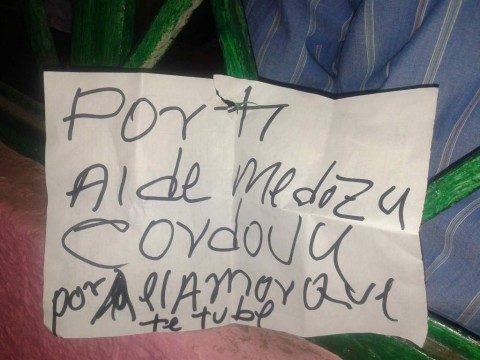 Por ti
AIde Medoza
Cordova
por el Amor Que
te tube